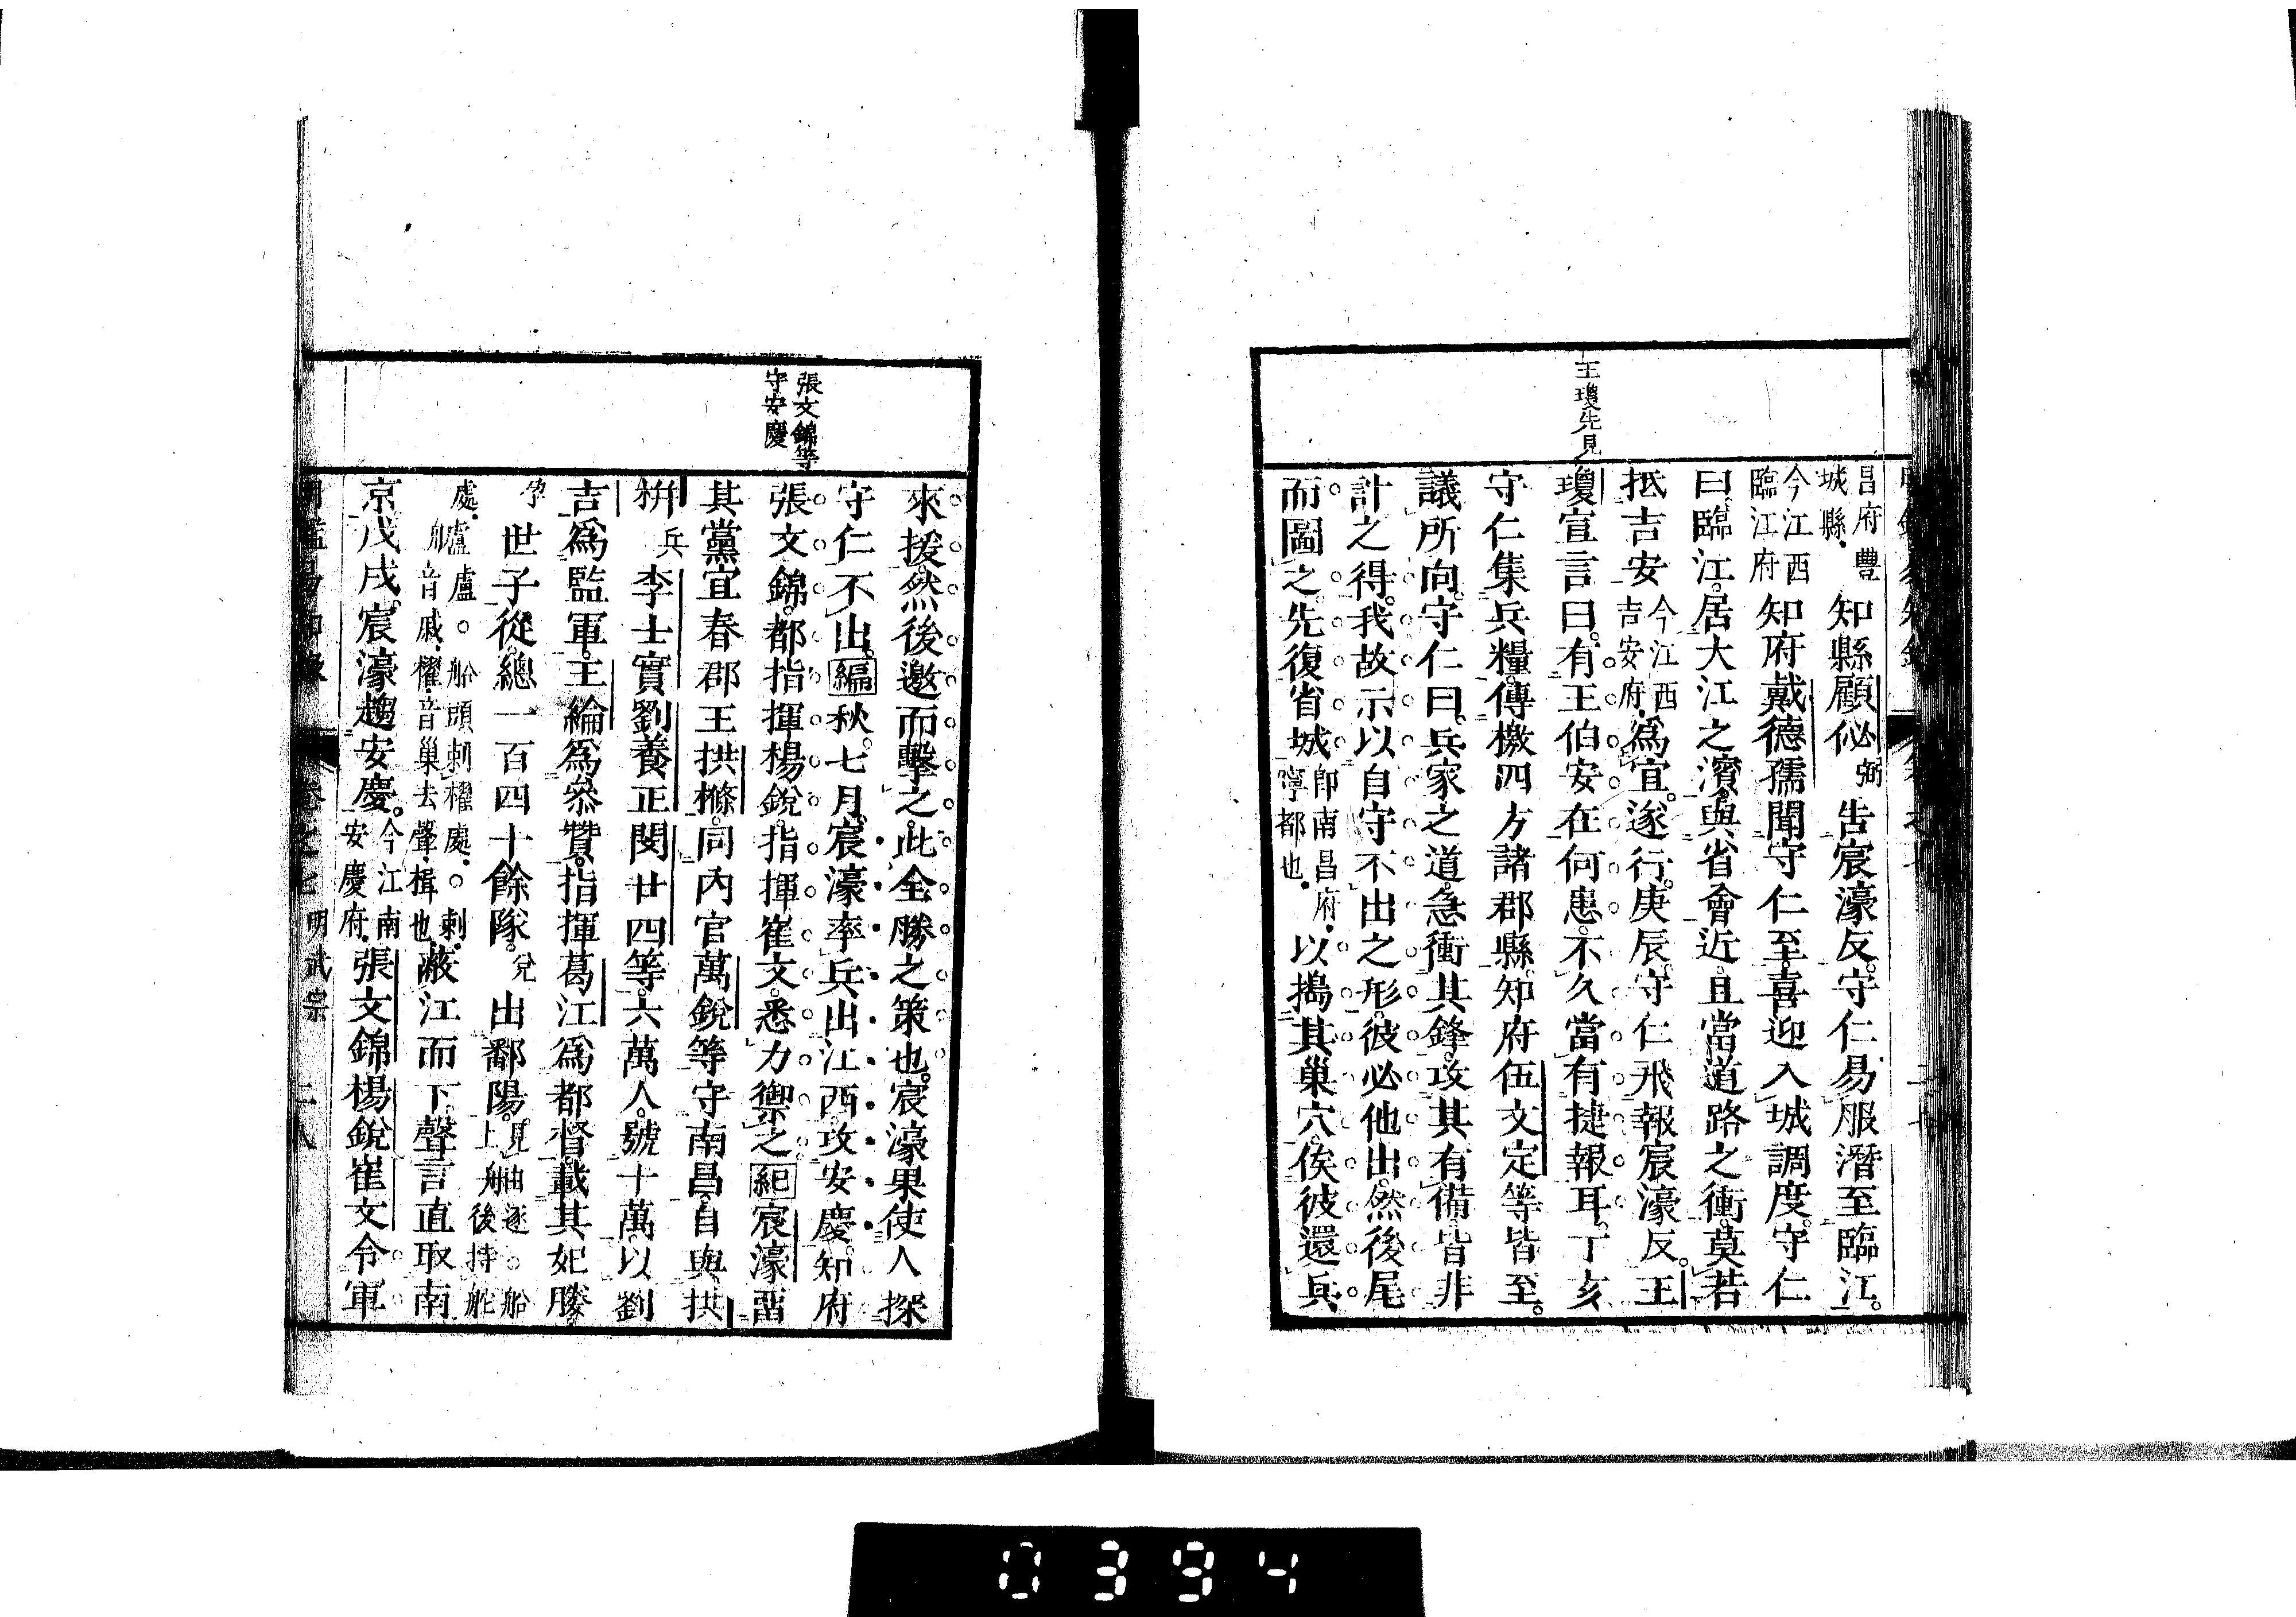 王瓊先見
昌府豐
城縣
知縣顧佖
弼
告宸濠反守仁易服潛至臨江
今江西
臨江府
知府戴德孺聞守仁至喜迎入城調度守仁
曰臨江居大江之濱與省會近且當道路之衝莫若
抵吉安
今江西
吉安府
爲宜遂行庚辰守仁飛報宸濠反王
瓊宣言曰有王伯安在何患不久當有捷報耳丁亥
守仁集兵糧傳檄四方諸郡縣知府伍文定等皆至
議所向守仁曰兵家之道急衝其鋒攻其有備皆非
計之得我故示以自守不出之形彼必他出然後尾
而圖之先復省城
卽南昌府
寧都也
以搗其巢穴俟彼還兵
張文錦等
守安慶
來援然後邀而擊之此全勝之策也宸濠果使人探
守仁不出編秋七月宸濠率兵出江西攻安慶知府
張文錦都指揮楊銳指揮崔文悉力禦之紀宸濠畱
其黨宜春郡王拱樤同內官萬銳等守南昌自與拱
栟
兵
李士實劉養正閔廿四等六萬人號十萬以劉
吉爲監軍王綸爲叅贊指揮葛江爲都督載其妃媵
孕
世子從總一百四十餘隊
兌
出鄱陽
見上
舳逐○船
後持舵
處艫盧○船頭刺櫂處○刺
音戚櫂音巢去聲楫也
蔽江而下聲言直取南
京戊戌宸濠趨安慶
今江南
安慶府
張文錦楊銳崔文令軍
卷之七
明武宗
二八
0394